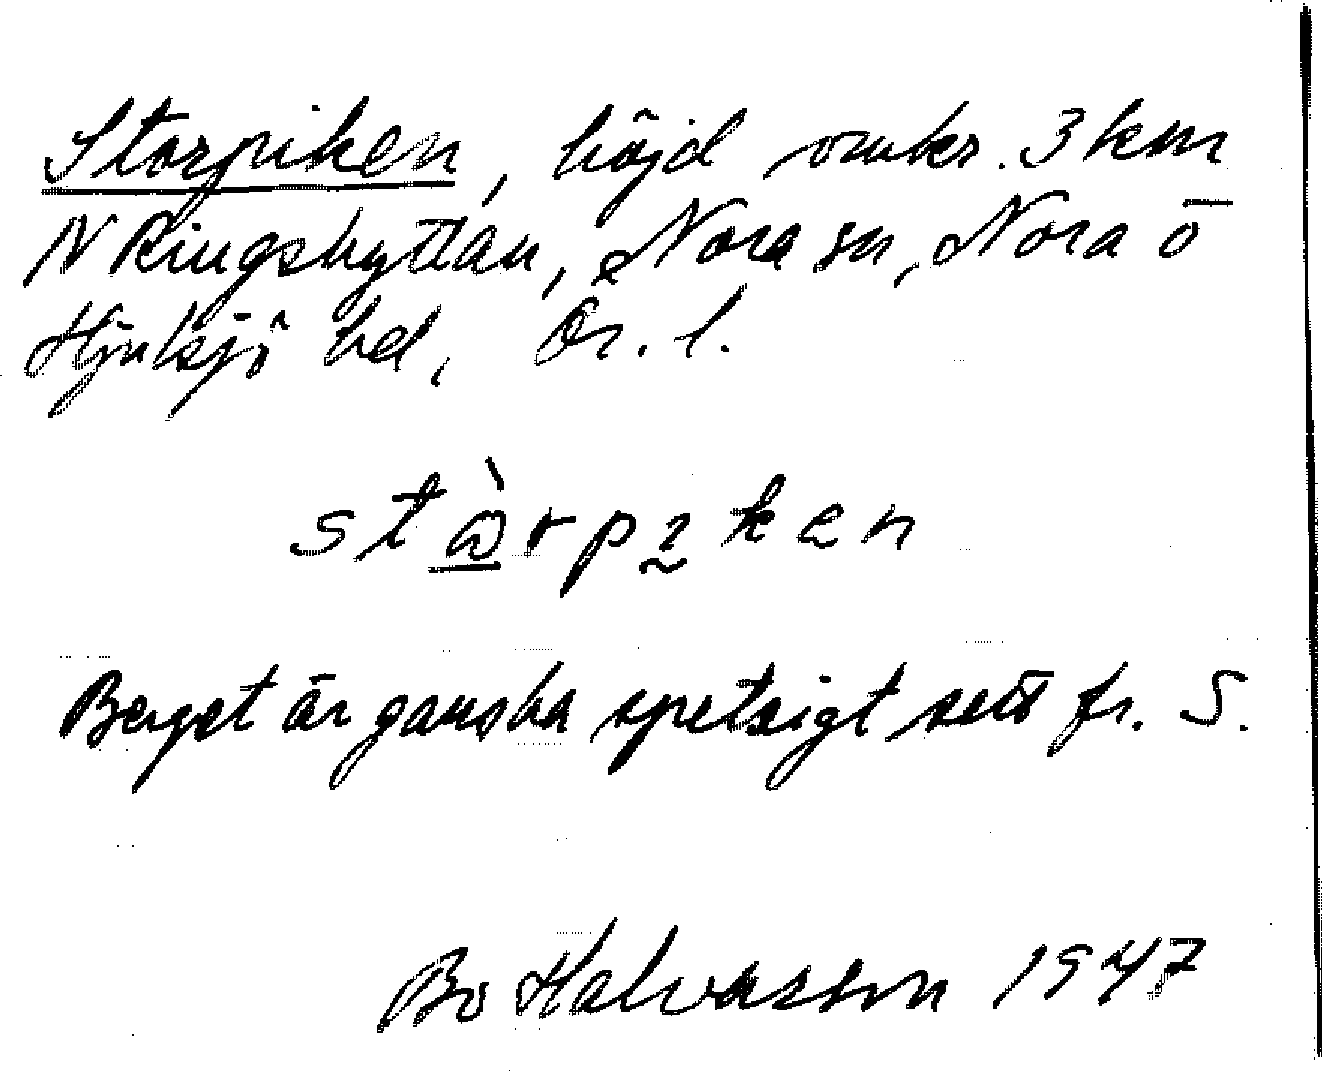 Storpiken, höjd omkr. 3 km
N Ringshyttan, Nora sn, Nora o
Hjulsjö hd, Ör. l.
stɷ̀rpıken
Berget är ganska spetsigt sett fr. S.
Bo Halvarsson 1947